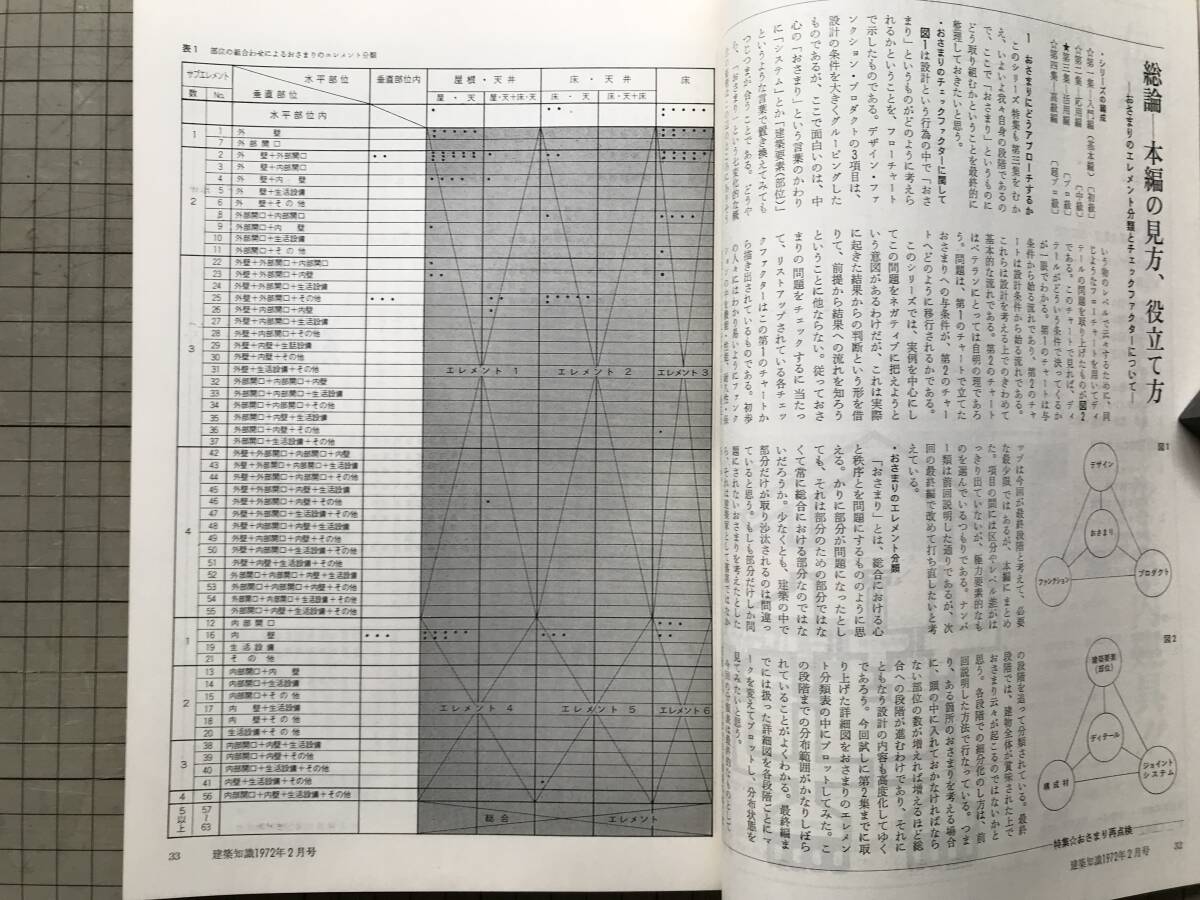 総論―本編の見方、役立て方
―おさまりのエレメント分類とチェックファクターについて―
・シリーズの構成
☆第一集―入門編(基本編)〔初級〕
☆第二集―応用編〔中級〕
★第三集―活用編〔プロ級〕
☆第四集―高級編〔超プロ級〕
1 おさまりにどうアプローチするか
このシリーズ特集も第三集をむか
え、いよいよ我々自身の段階であるの
で、ここで「おさまり」というものに
どう取り組むかということを最終的に
整理しておきたいと思う。
・おさまりのチェックファクターに関して
図1は設計という行為の中で「おさ
まり」というものがどのように考えら
れるかということを、フローチャート
で示したものである。デザイン・ファ
ンクション・プロダクトの3項目は、
設計の条件を大きくグルーピングした
ものであるが、ここで面白いのは、中
心の「おさまり」という言葉のかわり
に「システム」とか「建築要素(部位)」
というような言葉で置き換えてみても
つじつまが合うことである。どうや
いう物のレベルで云々するために、同
じようなフローチャートを用いてディ
テールの問題を取り上げたものが図2
である。このチャートで見れば、ディ
テールがどういう条件で決ってくるか
が一眼でわかる。第1のチャートは与
条件から始る流れであり、第2のチャ
ートは設計条件から始る流れである。
これらは設計を考える上でのきわめて
基本的な流れである。第2のチャート
はベテランにとっては自明の理であろ
う。問題は、第1のチャートで立てた
おさまりへの与条件が、第2のチャー
トへどのように移行されるかである。
このシリーズでは、実例を中心にし
てこの問題をネガティブに把えようと
いう意図があるわけだが、これは実際
に起きた結果からの判断という形を借
りて、前提から結果への流れを知ろう
ということに他ならない。従っておさ
まりの問題をチェックするに当たっ
て、リストアップされている各チェッ
クファクターはこの第1のチャートか
ら描き出されているものである。初歩
の人々にはわかり易いようにファンク
ップは今回が最終段階と考えて、必要
な最少限ではあるが、本編にまとめ
た。項目の間には区分やレベル差がは
っきり出ていないが、極力要素的なも
のを選んでいるつもりである。ナンバ
ー類は前回説明した通りであるが、次
回の最終編で改めて打ち直したいと考
えている。
・おさまりのエレメント分類
「おさまり」とは、総合における心
と秩序とを問題にするもののように思
える。かりに部分が問題になったとし
ても、それは部分のための部分ではな
くて常に総合における部分なのではな
いだろうか。少なくとも、建築の中で
部分だけが取り沙汰されるのは間違っ
ていると思う。もしも部分だけしか問
題にされないおさまりを考えたとした
の段階を追って分類されている。最終
段階では、建物全体が賞味された上で
おさまり云々が起こるのではないかと
思う。各段階での細分化のし方は、前
回説明した方法で行なっている。つま
り、ある箇所のおさまりを考える場合
に、頭の中に入れておかなければなら
ない部位の数が増えれば増えるほど総
合への段階が進むわけであり、それに
ともなう設計の内容も高度化してゆく
であろう。今回試しに第2集までに取
り上げた詳細図をおさまりのエレメン
ト分類表の中にプロットしてみた。こ
の段階までの分布範囲がかなりしぼら
れていることがよくわかる。最終編ま
でには扱った詳細図を各段階ごとにマ
ークを変えてプロットし、分布状態を
見てみたいと思う。
図1
デザイン
おさまり
ファンクション
プロダクト
図2
建築要素
(部位)
ディテール
構成材
ジョイント
システム
特集☆おさまり再点検
建築知識1972年2月号 32
表1 部位の組合わせによるおさまりのエレメント分類
サブエレメント 水平部位 垂直部位 垂直部位内 屋根・天井 床・天井 床
数 No. 屋・天 屋・天+床・天 床・天 床・天+床
水平部位内
1
1 外壁
7 外部開口
2
2 外壁+外部開口
3 外壁+内部開口
4 外壁+内壁
5 外壁+生活設備
6 外壁+その他
8 外部開口+内部開口
9 外部開口+内壁
10 外部開口+生活設備
11 外部開口+その他
3
22 外壁+外部開口+内部開口
23 外壁+外部開口+内壁
24 外壁+外部開口+生活設備
25 外壁+外部開口+その他
26 外壁+内部開口+内壁
27 外壁+内部開口+生活設備
28 外壁+内部開口+その他
29 外壁+内壁+生活設備
30 外壁+内壁+その他
31 外壁+生活設備+その他
32 外部開口+内部開口+内壁
33 外部開口+内部開口+生活設備
34 外部開口+内部開口+その他
35 外部開口+内壁+生活設備
36 外部開口+内壁+その他
37 外部開口+生活設備+その他
エレメント1 エレメント2 エレメント3
4
42 外壁+外部開口+内部開口+内壁
43 外壁+外部開口+内部開口+生活設備
44 外壁+外部開口+内部開口+その他
45 外壁+外部開口+内壁+生活設備
46 外壁+外部開口+内壁+その他
47 外壁+外部開口+生活設備+その他
48 外壁+内部開口+内壁+生活設備
49 外壁+内部開口+内壁+その他
50 外壁+内部開口+生活設備+その他
51 外壁+内壁+生活設備+その他
52 外部開口+内部開口+内壁+生活設備
53 外部開口+内部開口+内壁+その他
54 外部開口+内部開口+生活設備+その他
55 外部開口+内壁+生活設備+その他
1
12 内部開口
16 内壁
19 生活設備
21 その他
2
13 内部開口+内壁
14 内部開口+生活設備
15 内部開口+その他
17 内壁+生活設備
18 内壁+その他
20 生活設備+その他
エレメント4 エレメント5 エレメント6
3
38 内部開口+内壁+生活設備
39 内部開口+内壁+その他
40 内部開口+生活設備+その他
41 内壁+生活設備+その他
4
56 内部開口+内壁+生活設備+その他
5以上
57~63
総合 エレメント
33 建築知識1972年2月号